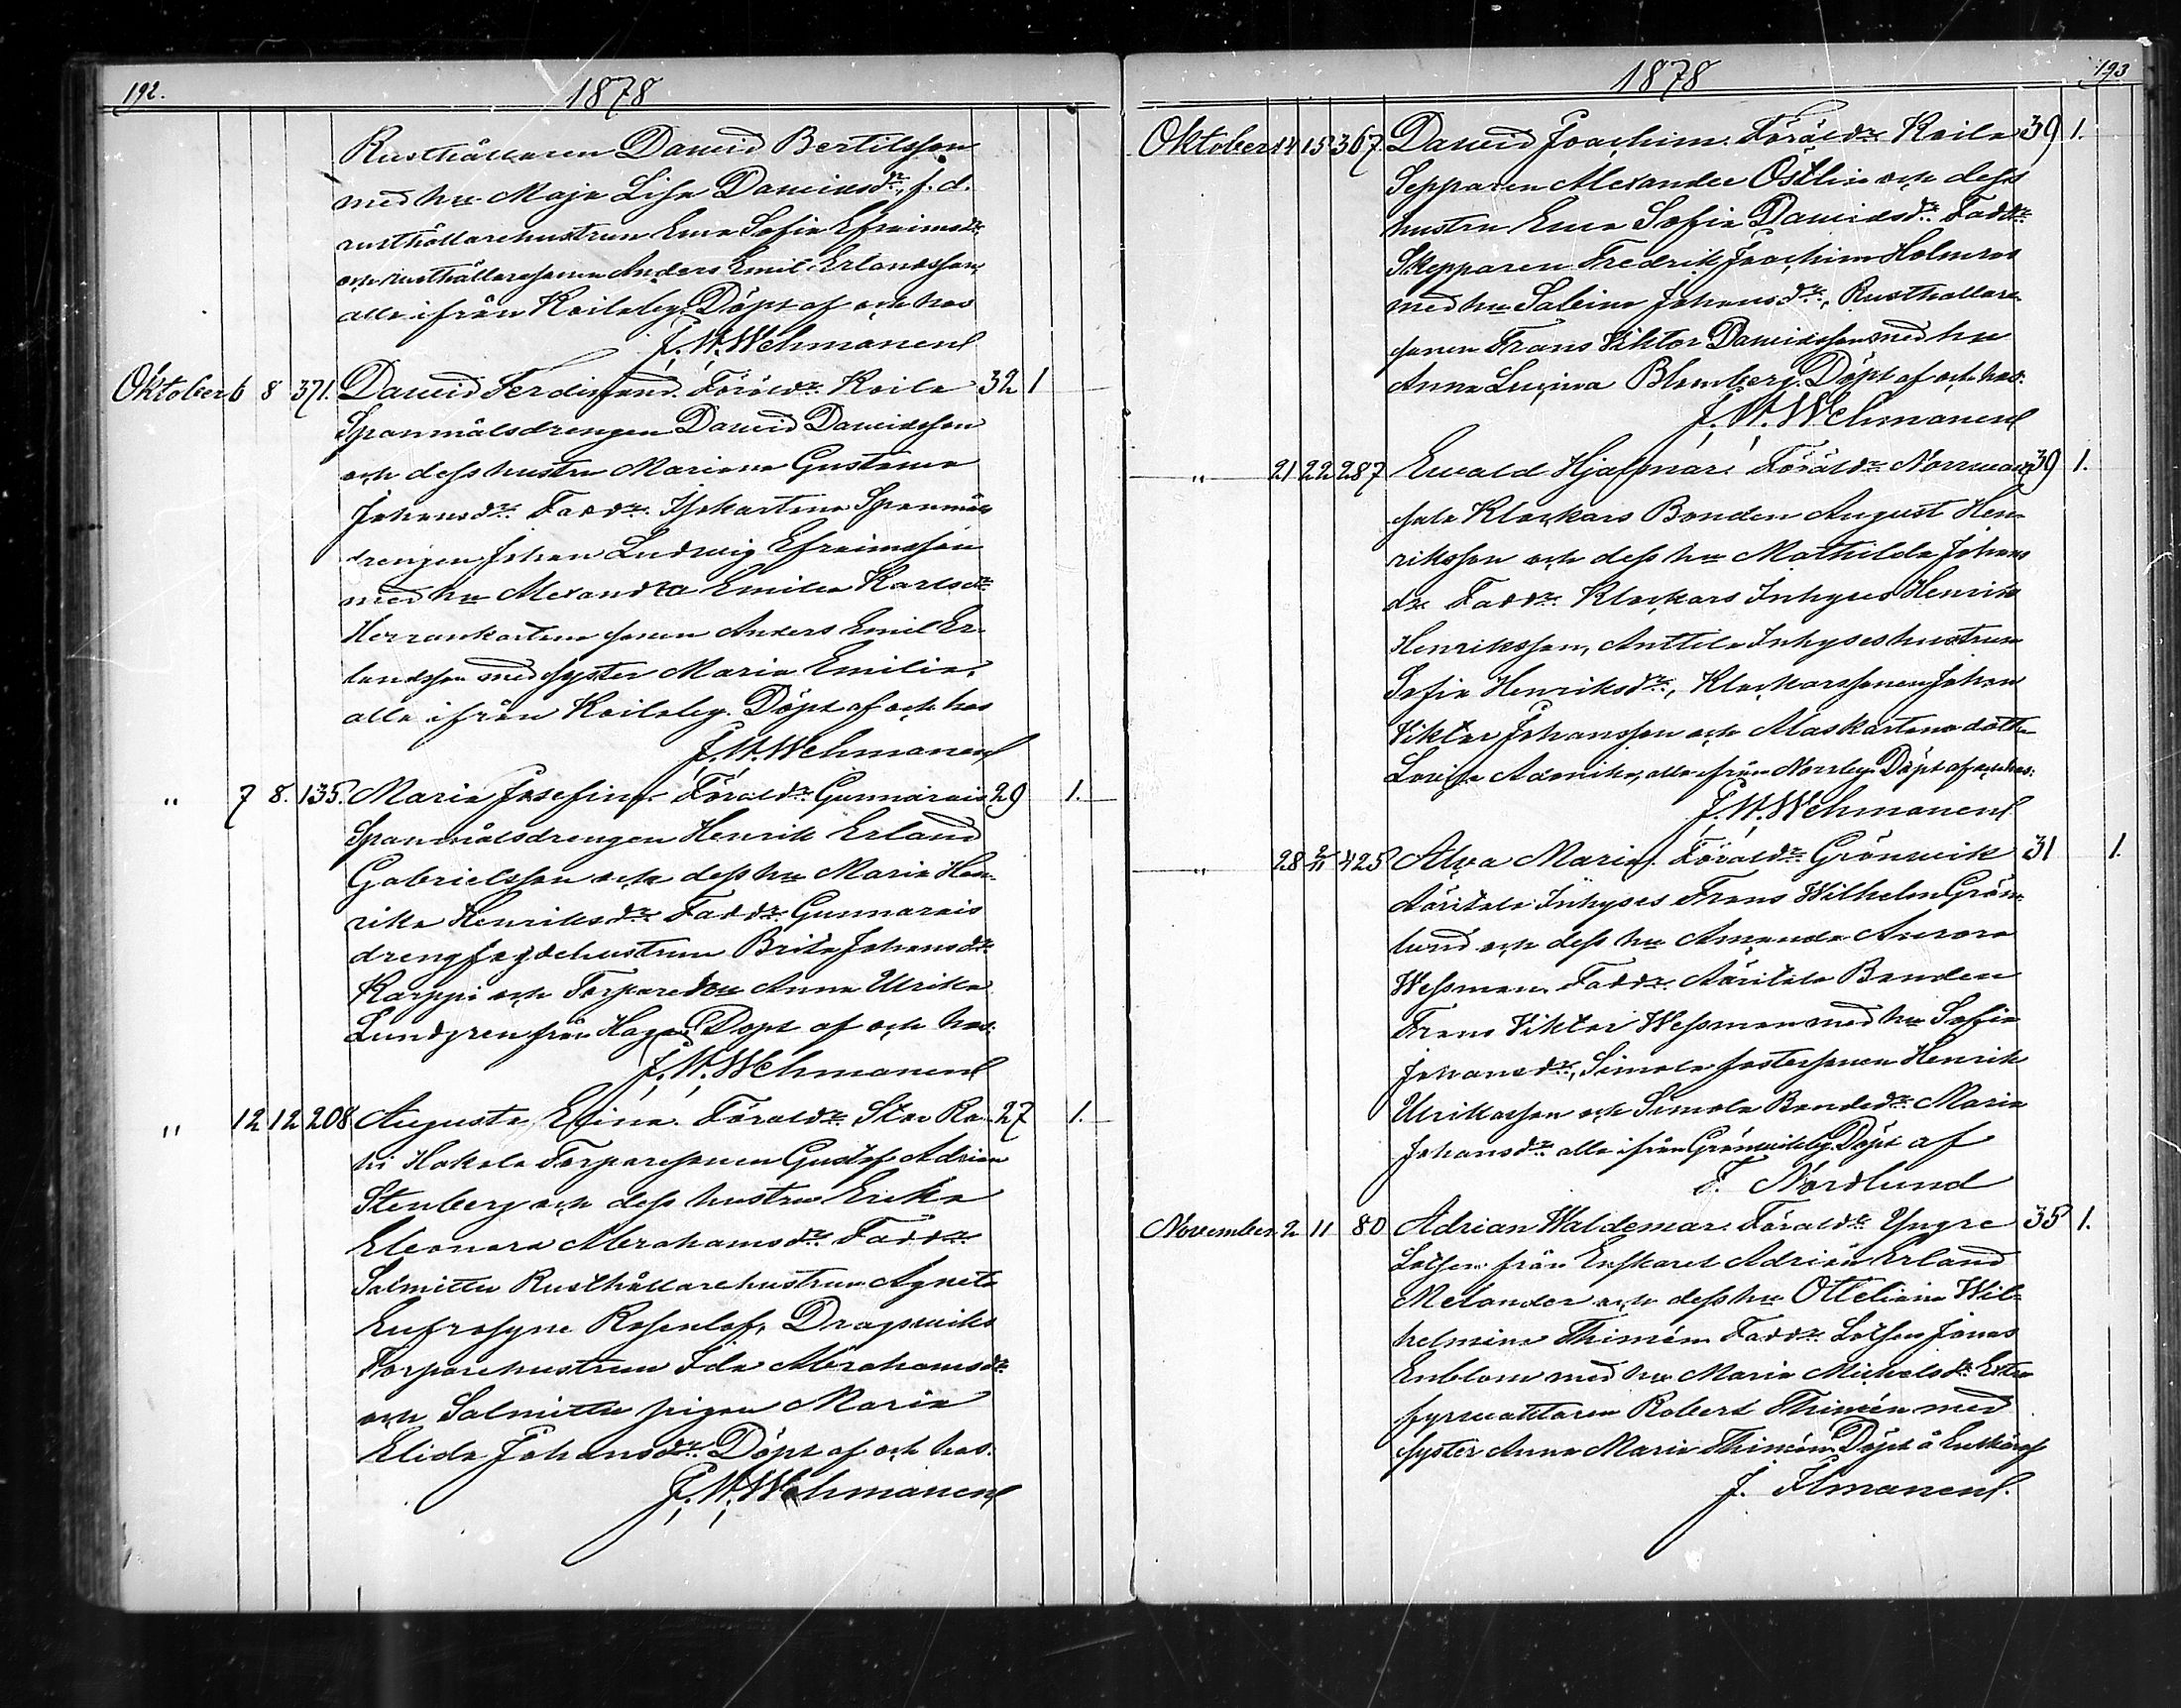 192.
1878
Rusthållaren Dawid Bertilsson
med hu Maja Lisa Dawidsdr, f. d.
rusthållarehustrun Ewa Sofia Efraimsdr
och rusthållaresonen Anders Emil Erlandsson
alla ifrån Koilaby. Döpt af och hos
J. W. Wehmanen
Oktober 6 8 371. Dawid Ferdinand. Föräldr. Koila 32 1
Spanmålsdrengen Dawid Dawidsson
och dess hustru Mariana Gustawa
Johansdr. Faddr. Spanmåls
drengen Johan Ludwig Efraimsson
med hu Alexandra Emilia Karlsdr
Herrankartano sonen Anders Emil Er
landsson med syster Maria Emilia,
alla ifrån Koilaby. Döpt af och hos
J. W. Wehmanen
" 7 8. 135. Maria Josefina. Föräldr. Gunnarais 29 1.
Spanmålsdrengen Henrik Erland
Gabrielsson och dess hu Maria Hen
rika Henriksdr. Faddr. Gunnarais
drengfogdehustrun Brita Johansdr
Karppi och Torpare hu Anna Ulrika
Lundgren från Haga. Döpt af och hos.
J. W. Wehmanen
" 12 12 208 Augusta Elina. Föräldr. Stor Ra 27 1.
hi Hakala Torparesonen Gustaf Adrian
Stenberg och dess hustru Erika
Eleonora Abrahamsdr. Faddr
Salmittu Rusthållarehustrun Agneta
Eufrosyne Rosenlöf, Dragswiks
Torparehustrun Ida Abrahamsdr
och Salmittu pigan Maria
Elida Johansdr. Döpt af och hos.
J. W. Wehmanen
1878
193
Oktober 14 15 367. Dawid Joachim. Föräldr. Koila 39 1.
Sepparen Alexander Östlin och dess
hustru Ewa Sofia Dawidsdr. Faddr
Skepparen Fredrik Joachim Holmroos
med hu Sabina Johansdr, Rusthållare
sonen Frans Viktor Dawidsson med hu
Anna Lucina Blomberg. Döpt af och hos.
J. W. Wehmanen
" 21 22 287 Ewald Hjalmar. Föräldr. 39 1.
Klockars Bonden August Hen
riksson och dess hu Mathilda Johans
dr. Faddr. Klockars Inhyses Henrik
Henriksson, Anttila Inhyseshustrun
Sofia Henriksdr, Klockarssonen Johan
Viktor Johansson och Alaskartano dotter
Lovisa Adonika, alla från Norrby. Döpt af och hos.
J. W. Wehmanen
" 28 2/11 425 Alva Maria. Föräldr. Grönwik 31 1.
Ääritalo Inhyses Frans Wilhelm Grön
lund och dess hu Amanda Aurora
Wessman. Faddr. Ääritalo Bonden
Frans Viktor Wessman med hu Sofia
Johansdr, Simola fostersonen Henrik
Ulriksson och Simola Bondedr. Maria
Johansdr alla ifrån Grönwikby. Döpt af
F. Nordlund
November 2 11 80 Adrian Waldemar. Föräldr. Yngre 35 1.
Lotsen från Enskäret Adrian Erland
Melander och dess hu Ottiliana Wil
helmina Thimén. Faddr. Lotsen Jonas
Enblom med hu Maria Michelsdr. Extra
fyrwaktaren Robert Thimén med
syster Anna Maria Thimén. Döpt å Enskäret
J. Ilmanen.